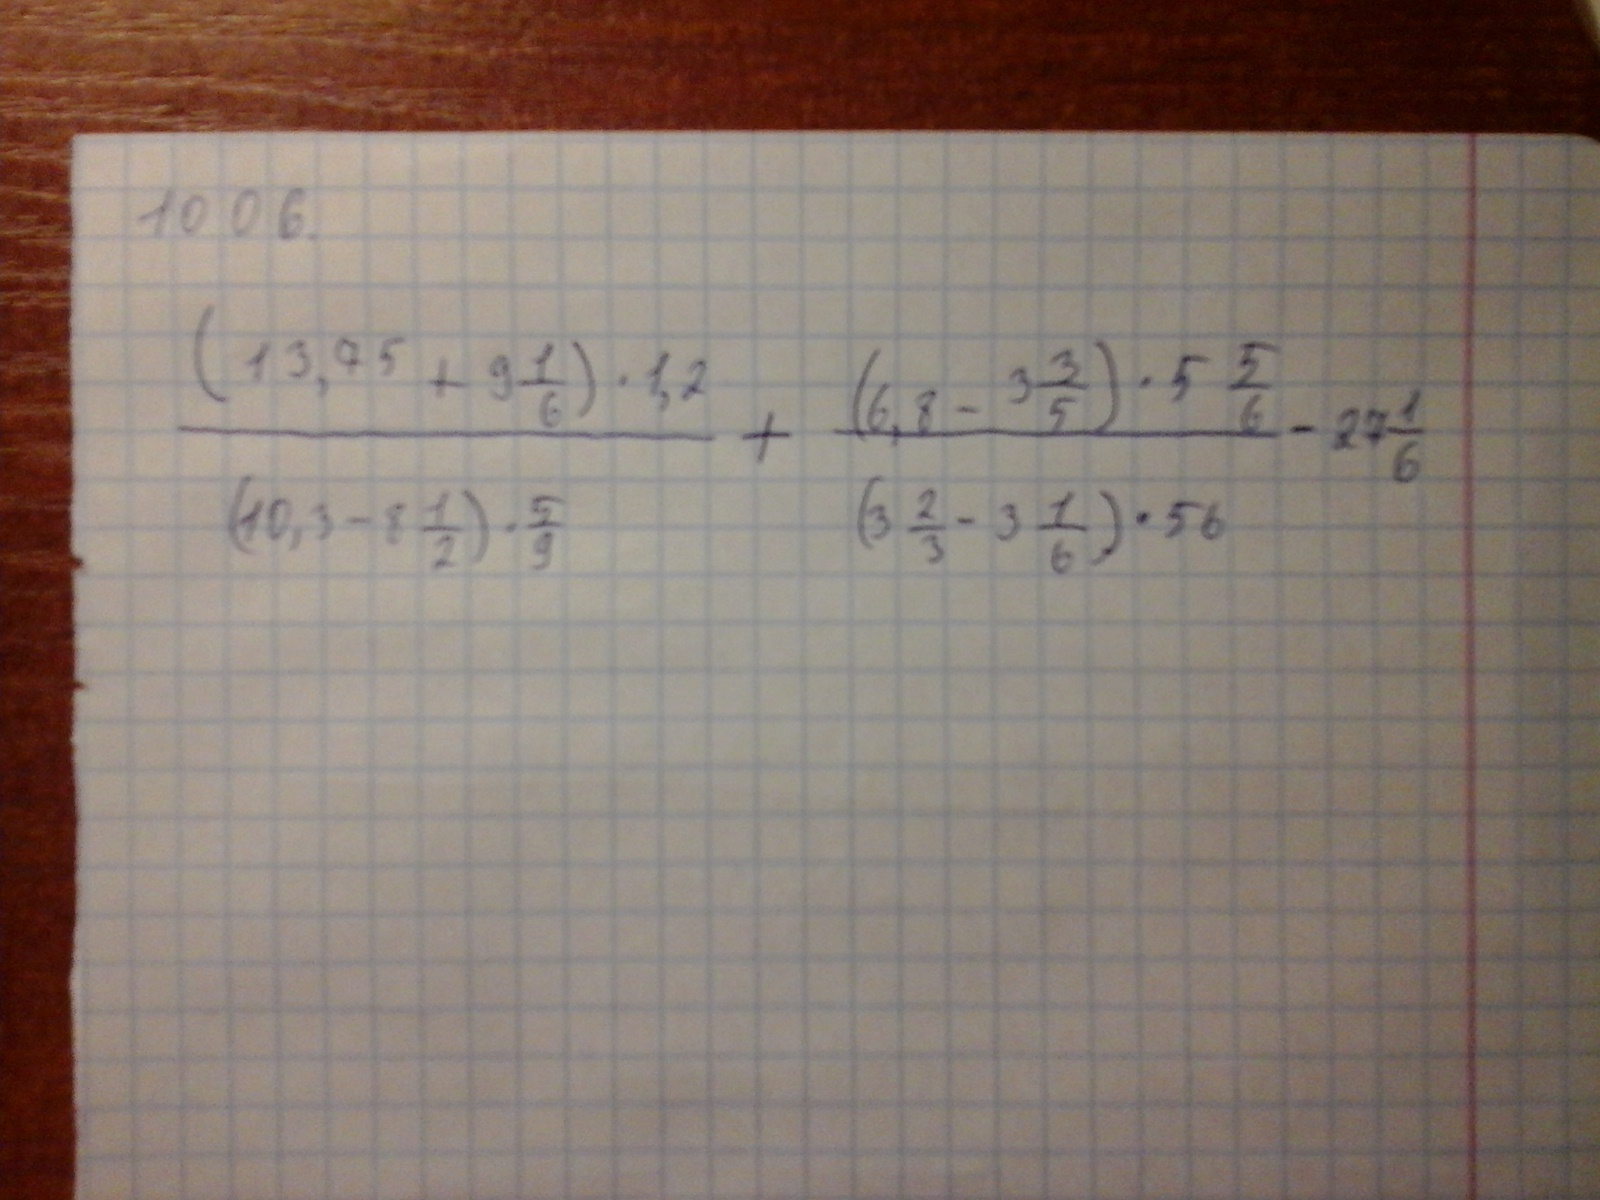 1006.
(13,75 + 9 1/6) · 1,2 / (10,3 - 8 1/2) · 5/9 + (6,8 - 3 3/5) · 5 5/6 / (3 2/3 - 3 1/6) · 56 - 27 1/6